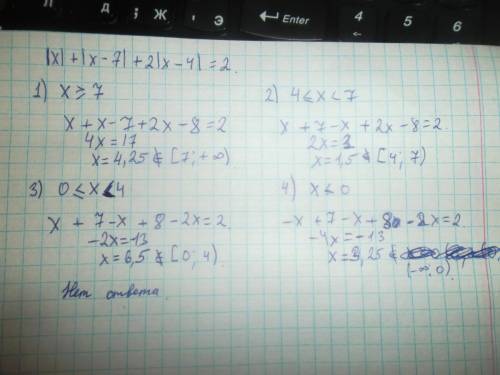 Л Д ; Ж , Э . Enter 4 5 6
|x|+|x-7|+2|x-4|=2.
1) x ≥ 7
x+x-7+2x-8=2
4x=17
x=4,25 ∉ [7;+∞)
2) 4≤x<7
x+7-x+2x-8=2.
2x=3
x=1,5 ∉ [4; 7)
3) 0≤x<4
x+7-x+8-2x=2.
-2x=-13
x=6,5 ∉ [0; 4)
4) x≤0
-x+7-x+8-2x=2.
-4x=-13
x=3,25 ∉
(-∞;0)
Нет ответа.